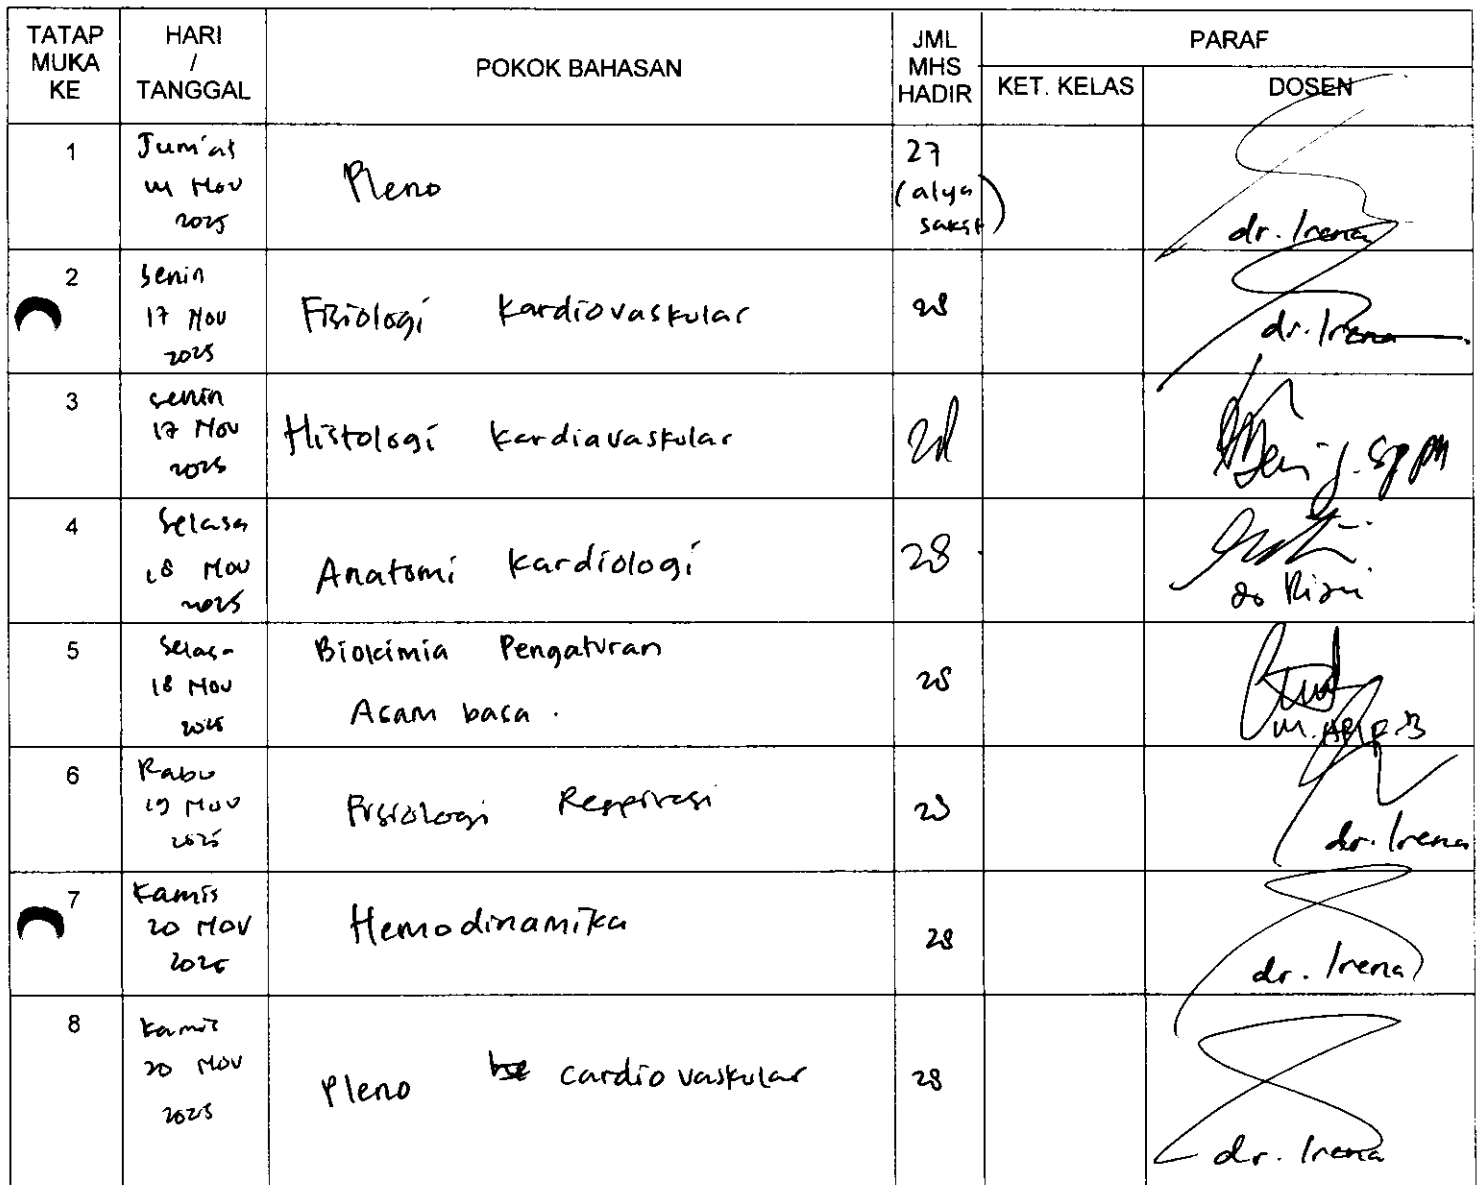 TATAP MUKA KE
HARI / TANGGAL
POKOK BAHASAN
JML MHS HADIR
PARAF
KET. KELAS
DOSEN
1
Jum'at
14 Nov
2025
Pleno
27
(alya
sakit)
dr. Irena
2
Senin
17 Nov
2025
Fisiologi Kardiovaskular
28
dr. Irena
3
Senin
17 Nov
2025
Histologi Kardiavaskular
28
4
Selasa
18 Nov
2025
Anatomi Kardiologi
28
5
Selasa
18 Nov
2025
Biokimia Pengaturan
Asam basa.
28
6
Rabu
19 Nov
2025
Fisiologi Respirasi
28
dr. Irena
7
Kamis
20 Nov
2025
Hemodinamika
28
dr. Irena
8
Kamis
20 Nov
2025
Pleno cardiovaskular
28
dr. Irena